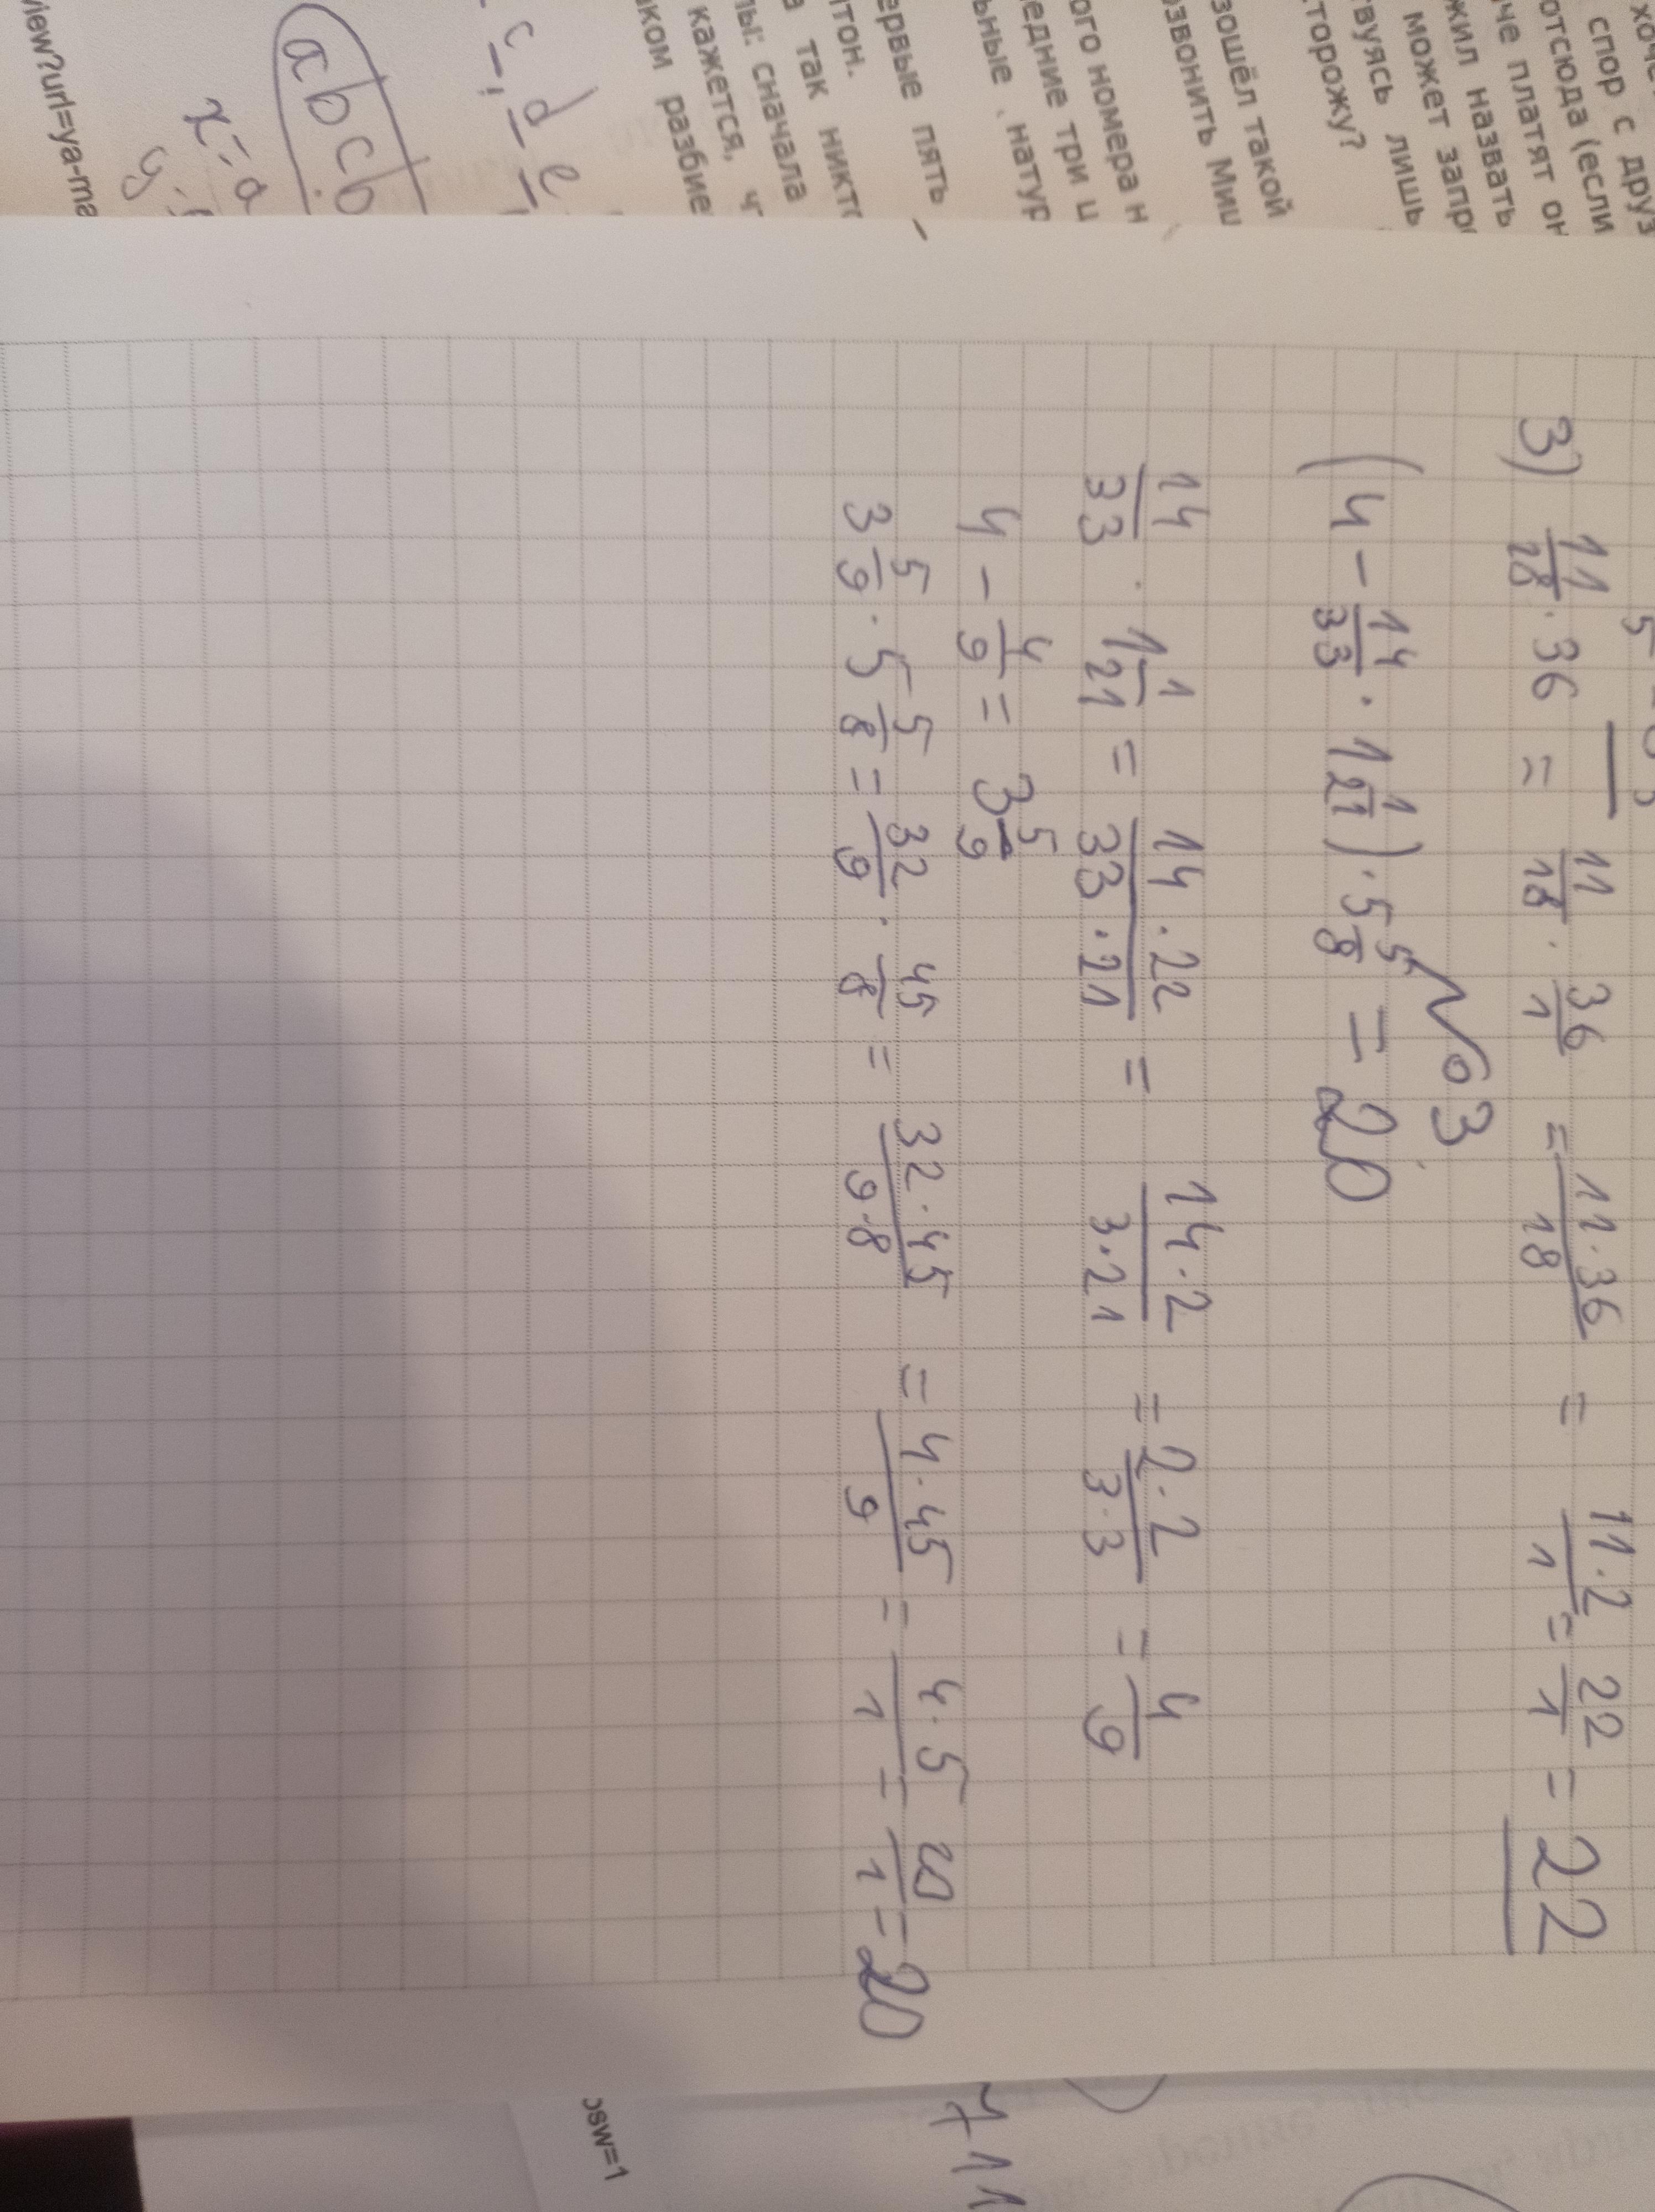 хоче
спор с друз
отсюда (если
че платят он
жил назвать
может запр
твуясь лишь
торожу?
зошёл такой
озвонить Миш
ого номера н
едние три ц
ьные натур
ервые пять
тон.
а так никто
лы: сначала
кажется, ч
аком разбие
c d e
abcb
x = a
y =
view?url=ya-ma
3) 11/18 · 36 = 11/18 · 36/1 = 11·36/18 = 11·2/1 = 22/1 = 22
√63
(4 - 14/33 · 1 1/21) · 5 5/8 = 20
14/33 · 1 1/21 = 14·22/33·21 = 14·2/3·21 = 2·2/3·3 = 4/9
4 - 4/9 = 3 5/9
3 5/9 · 5 5/8 = 32/9 · 45/8 = 32·45/9·8 = 4·45/9 = 4·5/1 = 20/1 = 20
osw=1